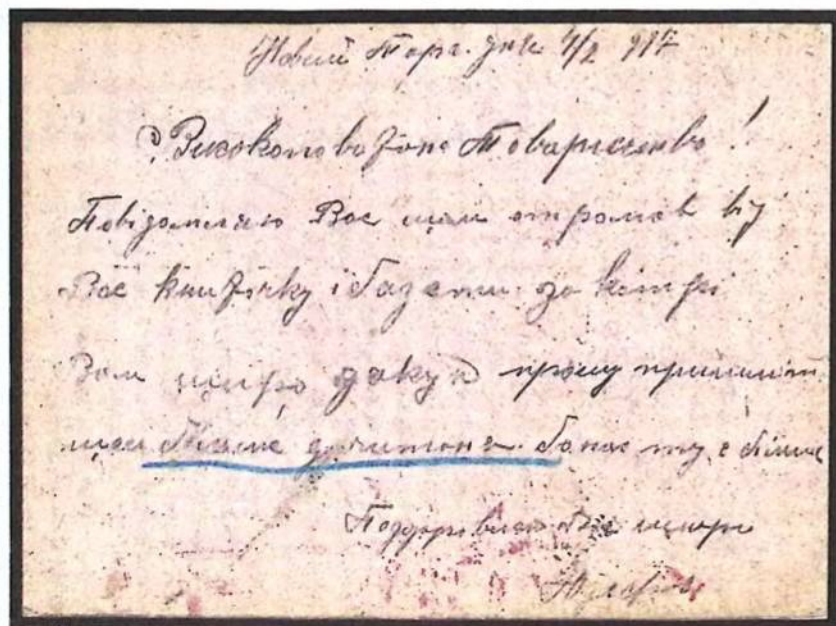 Новий Торг. дня 4/2 917
Високоповажане Товариство!
Повідомляю Вас що отримав від
Вас книжочку і газети за котрі
Вам щиро дякую прошу
більше до читаня. бо нас ту є більше
Поздоровляю Вас щиро